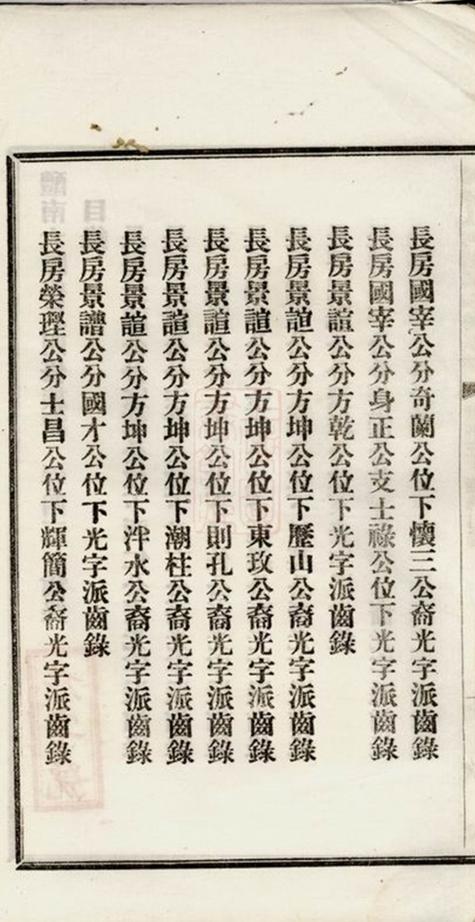 長房國宰公分奇蘭公位下懷三公裔光字派齒錄
長房國宰公分身正公支士祿公位下光字派齒錄
長房景誼公分方乾公位下光字派齒錄
長房景誼公分方坤公位下歷山公裔光字派齒錄
長房景誼公分方坤公位下東玫公裔光字派齒錄
長房景誼公分方坤公位下則孔公裔光字派齒錄
長房景誼公分方坤公位下潮柱公裔光字派齒錄
長房景誼公分方坤公位下泮水公裔光字派齒錄
長房景譜公分國才公位下光字派齒錄
長房榮瑆公分士昌公位下輝簡公裔光字派齒錄